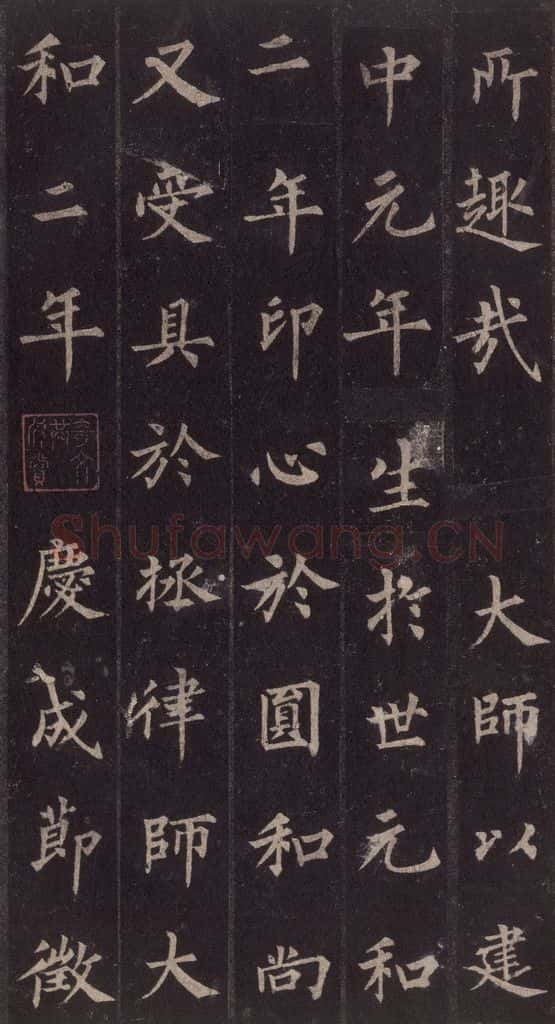 所趣哉大師以建
中元年生於世元和
二年印心於圓和尚
又受具於拯律師大
和二年慶成節徵
Shufawang.CN